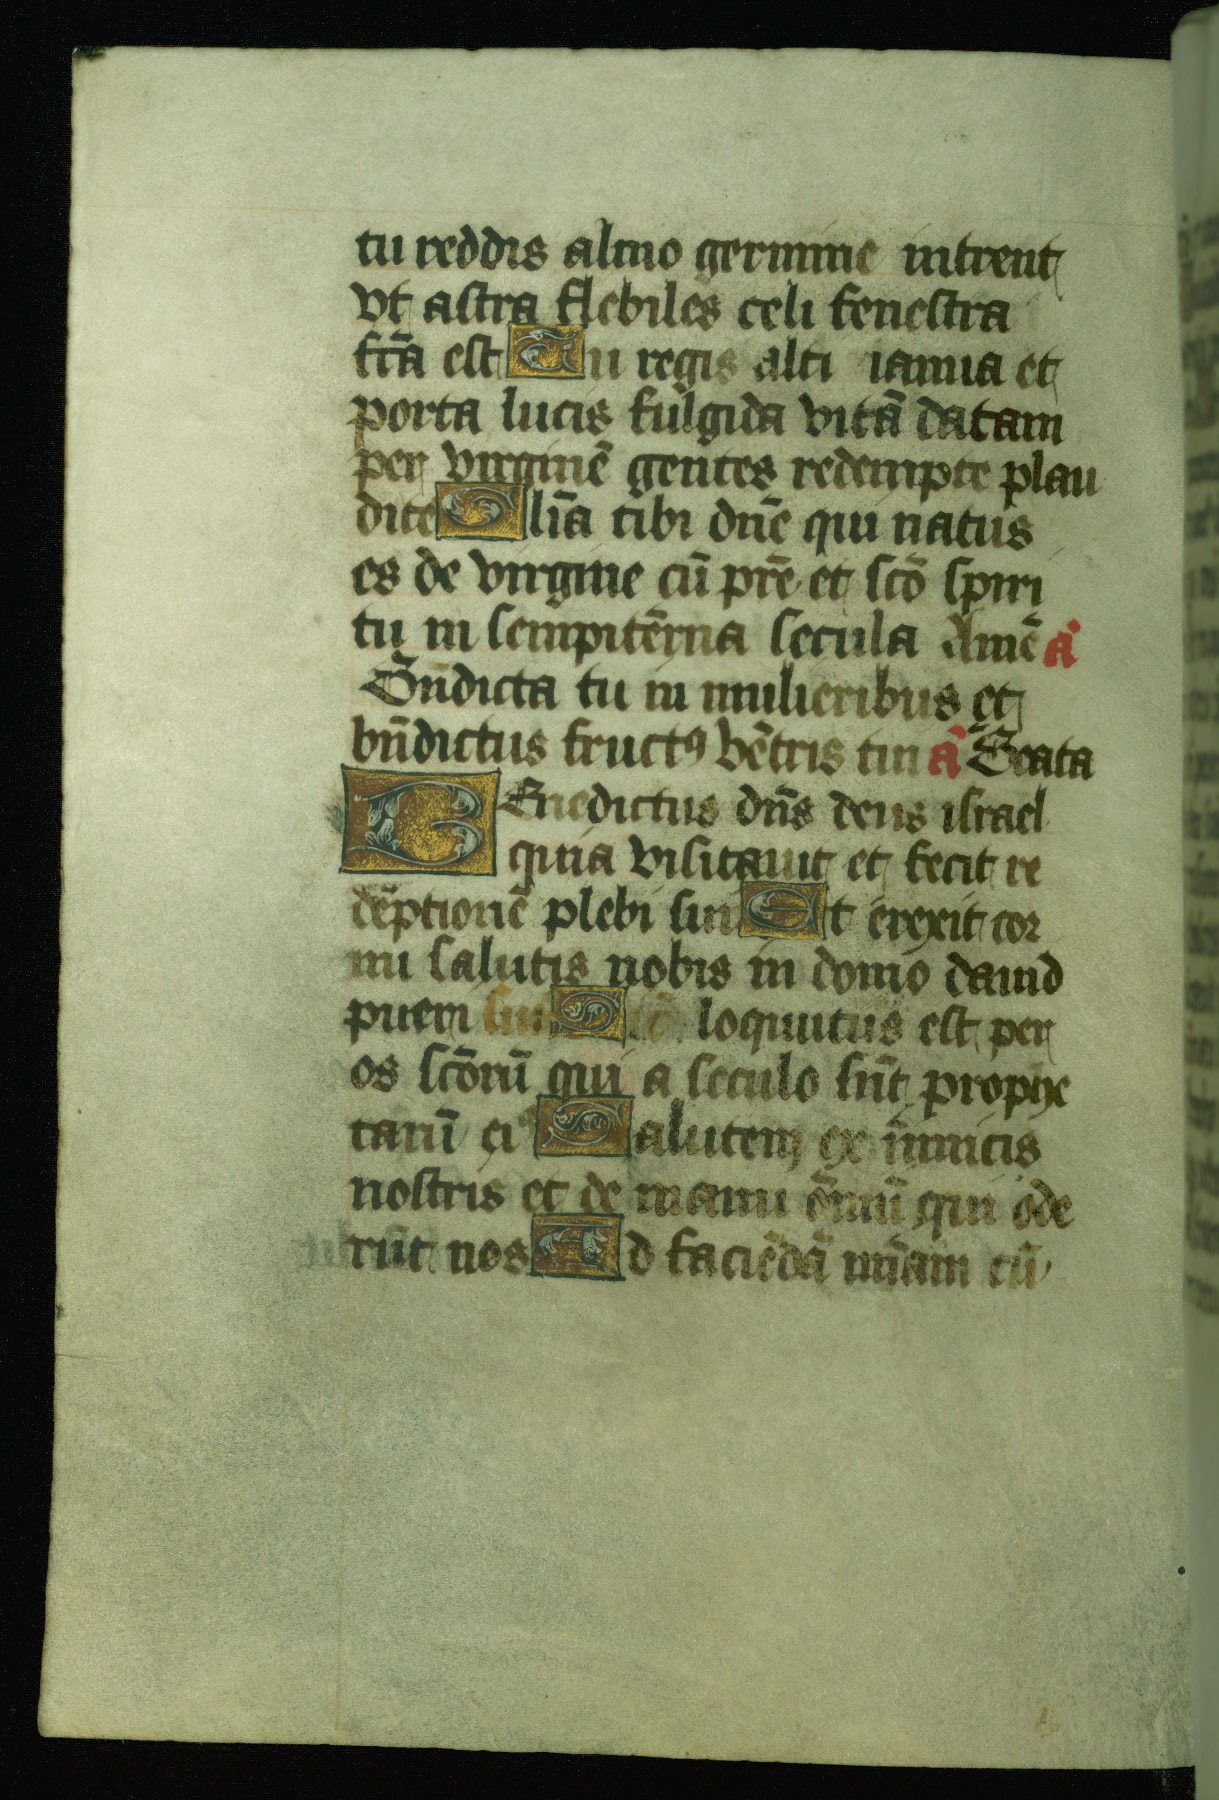 tu reddis almo germine intrent
vt astra flebiles celi fenestra
fc̄a est Tu regis alti ianua et
porta lucis fulgida vitā datam
per virginē gentes redempte plau
dite Glīa tibi dn̄e qui natus
es de virgine cū pr̄e et sc̄o spiri
tu in sempitērna secula Amē a͛
Bn̄dicta tu in mulieribus et
bn̄dictus fructꝰ vētris tui a͛ Beata
BEnedictus dn̄s deus israel
quia visitauit et fecit re
dēptionē plebi sue Et erexit cor
nu salutis nobis in domo dauid
pueri sui Sic̄ loquutus est per
os sc̄orū qui a seculo sūt prophe
tarū eiꝰ Salutem ex īimicis
nostris et de manu ōmīū qui ode
rūt nos Ad faciēdā mīam cū